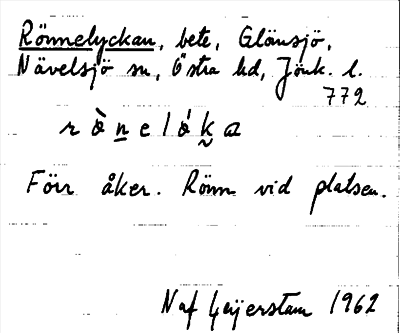 Rönnelyckan, bete, Glänsjö,
Nävelsjö sn, Östra hd, Jönk. l.
772
Förr åker. Rönn vid platsen.
Naf Geijerstam 1962